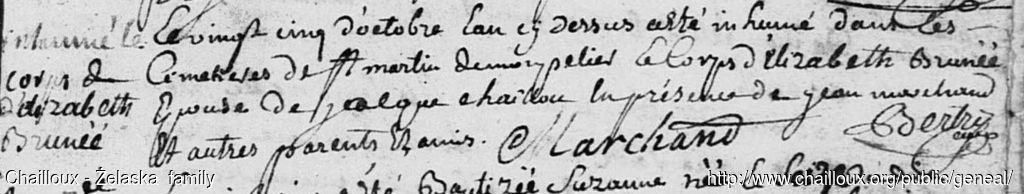 inhumé le
corps de
d'élizabeth
Brunéé
Le vingt cinq d'octobre Lan cy dessus a été inhumé dans les
Cemetieres de St martin de montpelier Le Corps d'Elizabeth Brunéé
Epouse de jacque chaillou En présence de jean marchand
Et autres parents Et amis. Marchand Bertry
été Baptizéé Suzanne néé
Chailloux - Želaska family
http://www.chailloux.org/public/geneal/